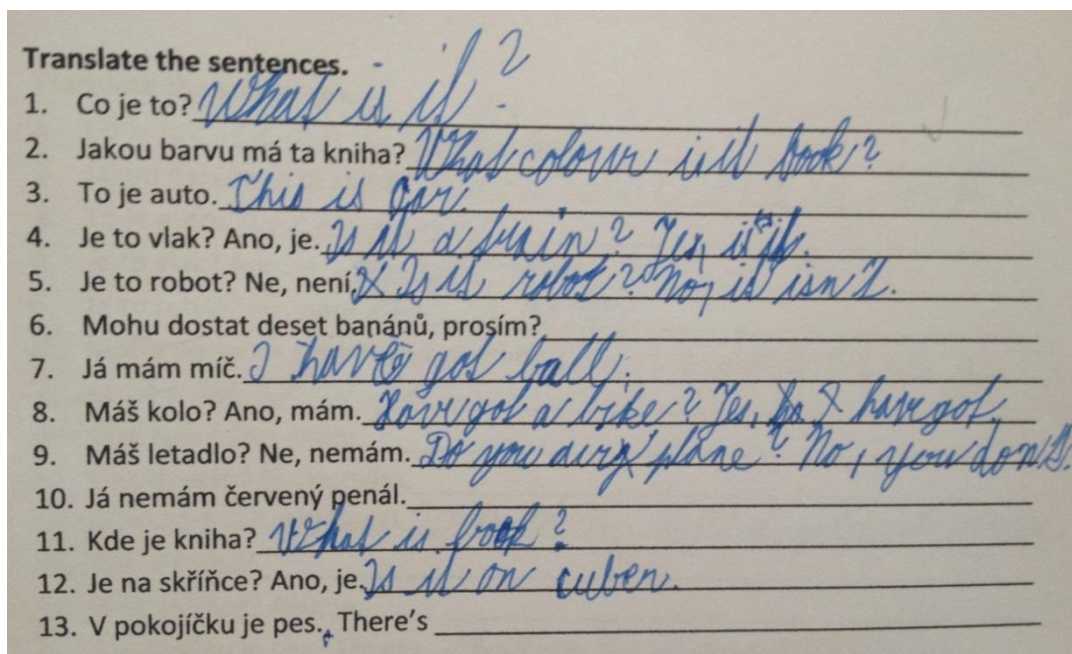 Translate the sentences.
1. Co je to? What is it?
2. Jakou barvu má ta kniha? What colour is it book?
3. To je auto. This is car.
4. Je to vlak? Ano, je. Is it a train? Yes, is it.
5. Je to robot? Ne, není. Is it robot? No, it isn't.
6. Mohu dostat deset banánů, prosím?
7. Já mám míč. I have got ball.
8. Máš kolo? Ano, mám. Have got a bike? Yes, I have got.
9. Máš letadlo? Ne, nemám. Do you plane? No, you don't.
10. Já nemám červený penál.
11. Kde je kniha? What is book?
12. Je na skříňce? Ano, je. Is it on cuben.
13. V pokojíčku je pes. There's